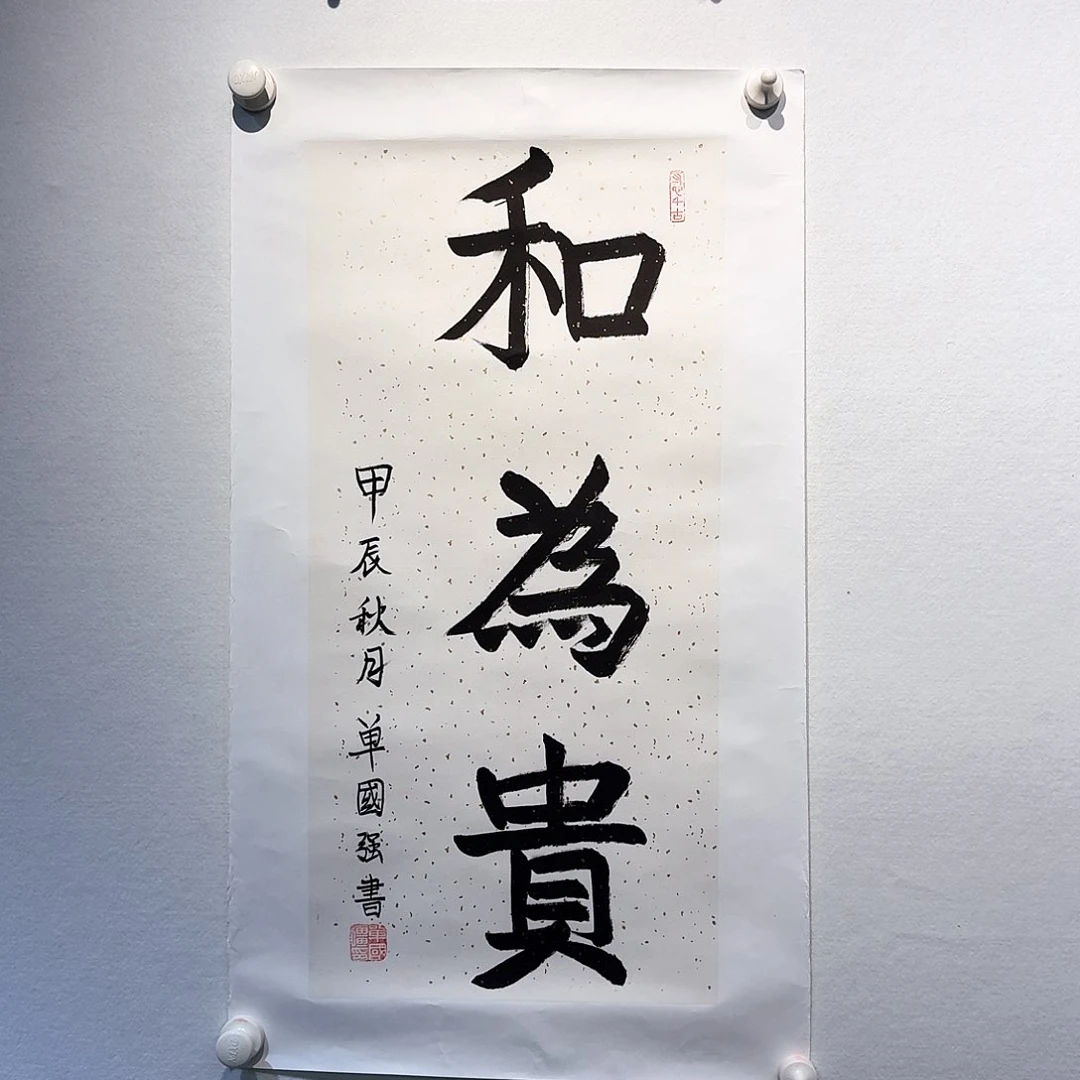 和為貴
甲辰秋月 单國强書